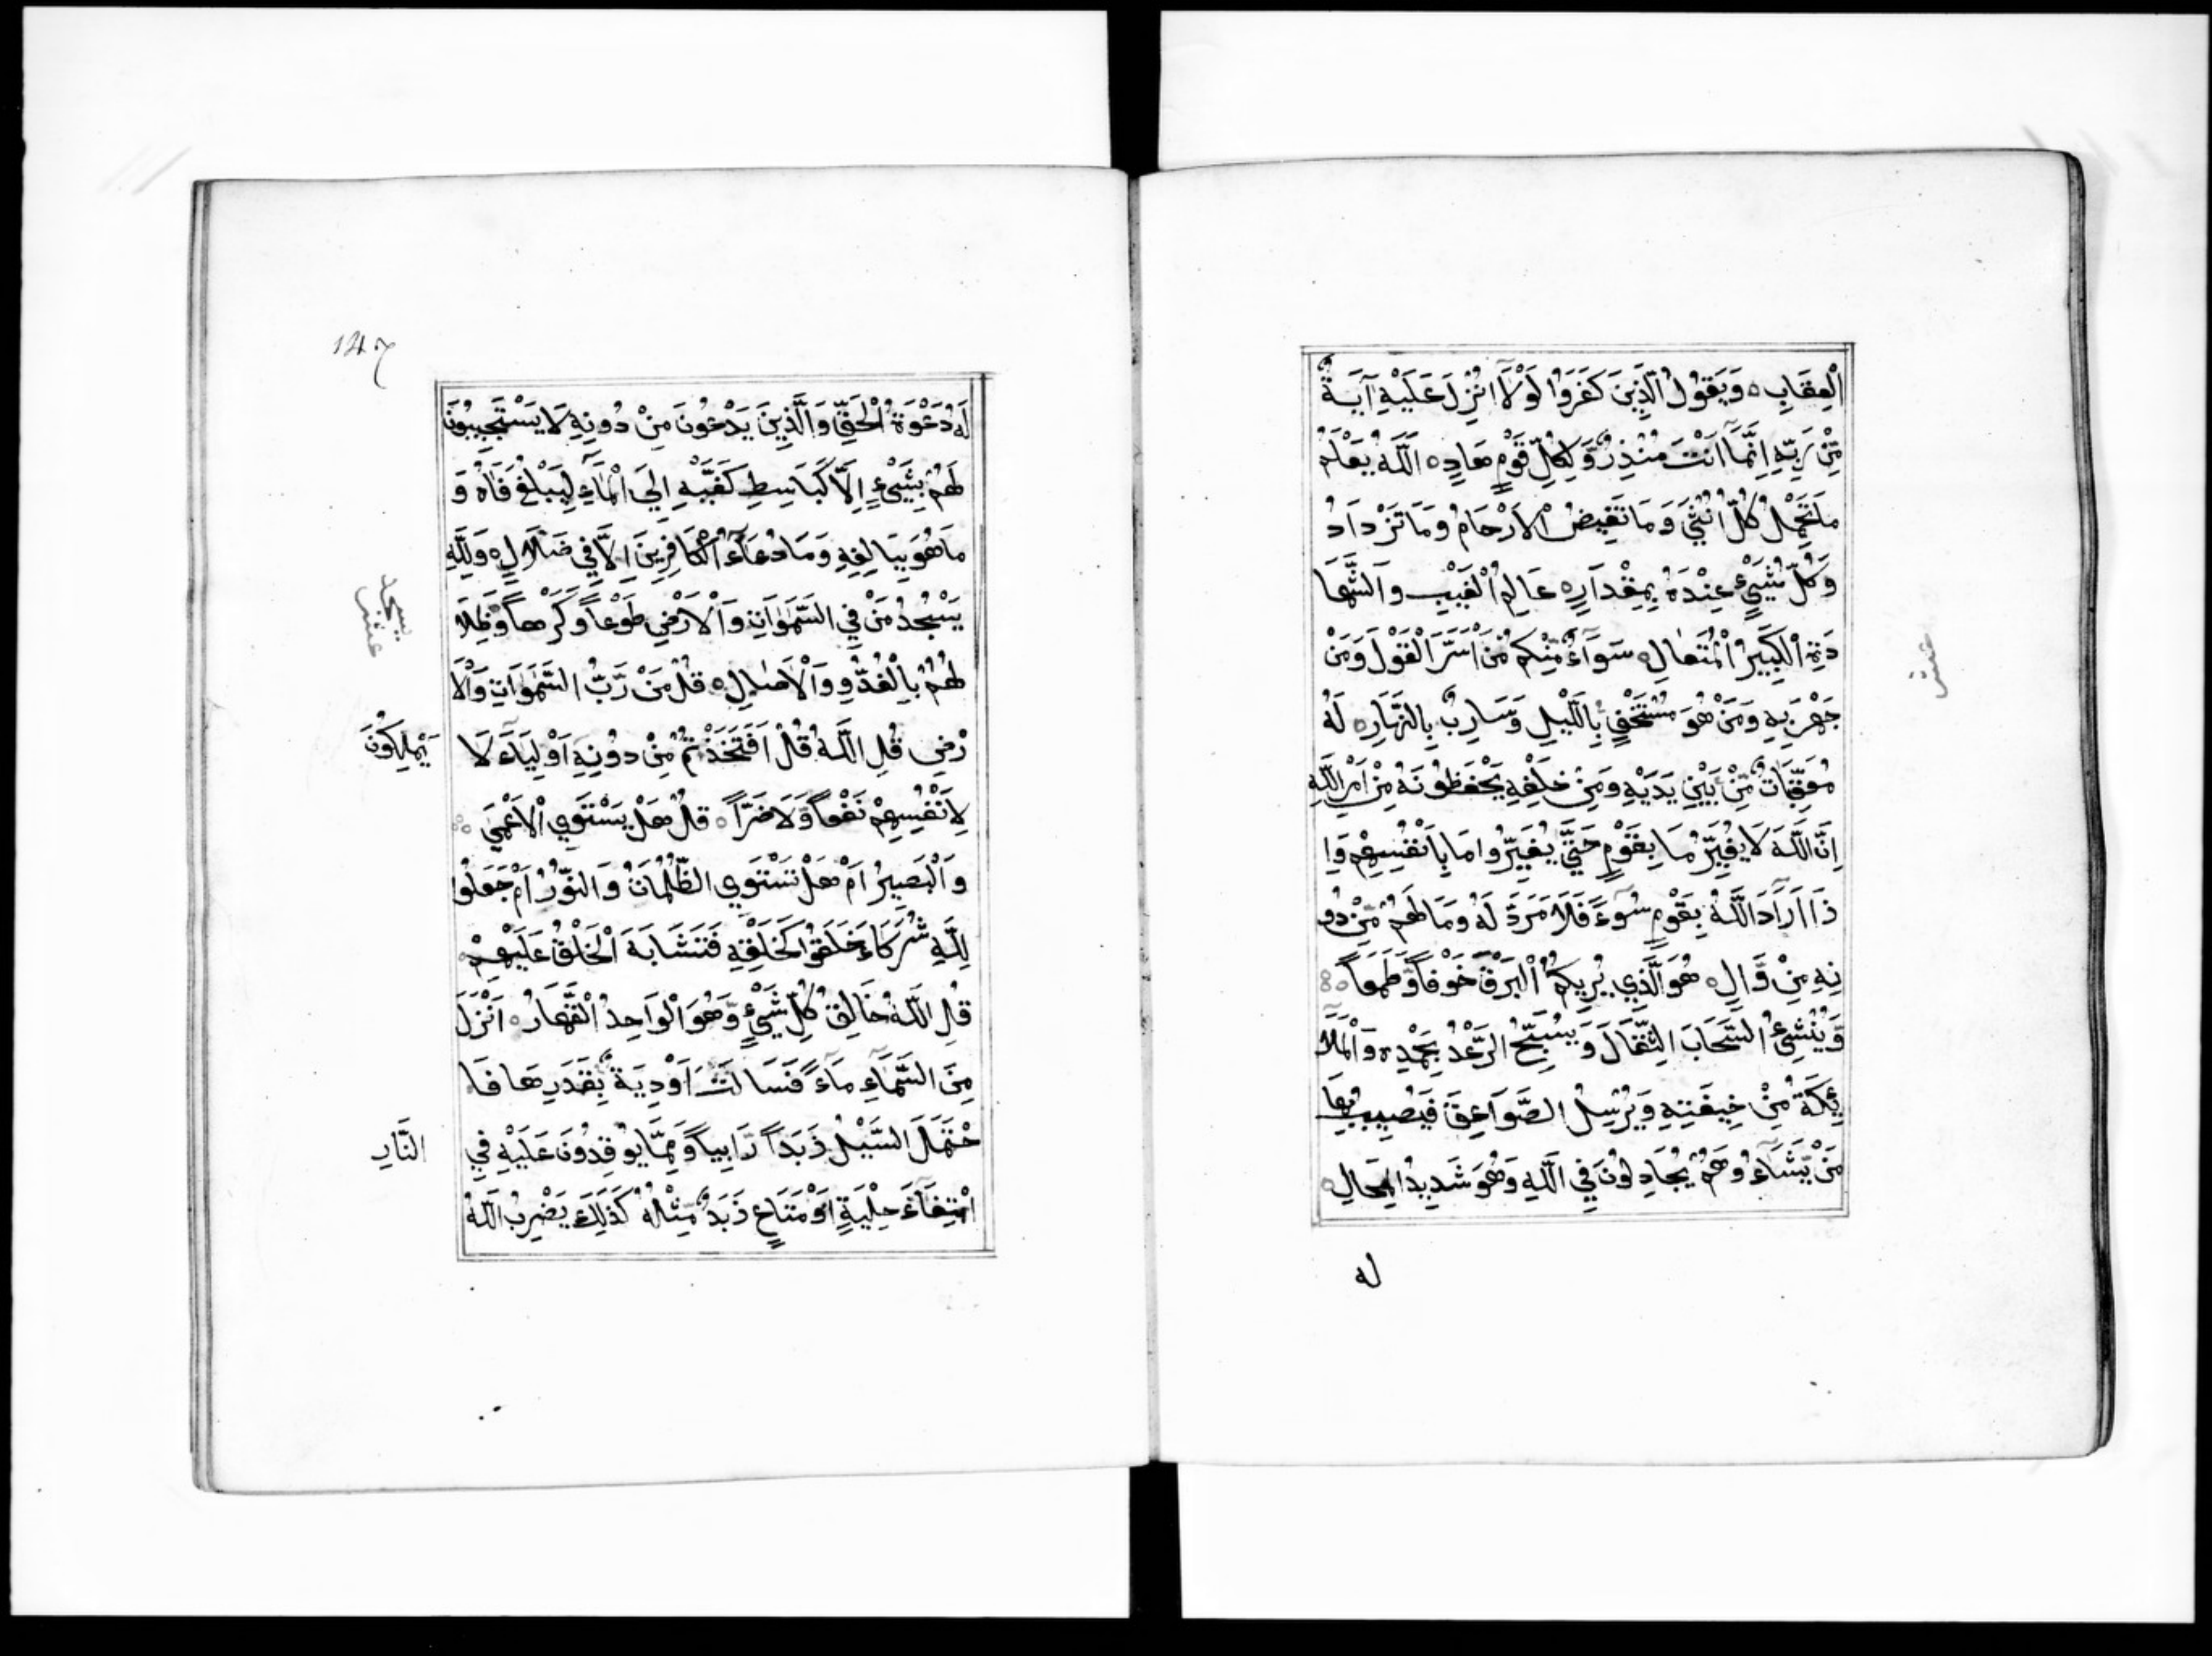 الْعِقَابِ ۝ وَيَقُولُ الَّذِينَ كَفَرُوا لَوْلَا اُنْزِلَ عَلَيْهِ آيَةٌ
مِّنْ رَبِّهِ اِنَّمَا اَنْتَ مُنْذِرٌ وَّلِكُلِّ قَوْمٍ هَادٍ ۝ اَللَّهُ يَعْلَمُ
مَا تَحْمِلُ كُلُّ اُنْثَي وَمَا تَغِيضُ الْاَرْحَامُ وَمَا تَزْدَادُ
وَكُلُّ شَيْءٍ عِنْدَهُ بِمِقْدَارٍ ۝ عَالِمُ الْغَيْبِ وَالشَّهَا
دَةِ الْكَبِيرُ الْمُتَعَالِ ۝ سَوَآءٌ مِّنْكُمْ مَّنْ اَسَرَّ الْقَوْلَ وَمَنْ
جَهَرَ بِهِ وَمَنْ هُوَ مُسْتَخْفٍ بِاللَّيْلِ وَسَارِبٌ بِالنَّهَارِ ۝ لَهُ
مُعَقِّبَاتٌ مِّنْ بَيْنِ يَدَيْهِ وَمِنْ خَلْفِهِ يَحْفَظُونَهُ مِنْ اَمْرِ اللَّهِ
اِنَّ اللَّهَ لَا يُغَيِّرُ مَا بِقَوْمٍ حَتَّي يُغَيِّرُوا مَا بِاَنْفُسِهِمْ وَاِ
ذَا اَرَادَ اللَّهُ بِقَوْمٍ سُوءً فَلَا مَرَدَّ لَهُ وَمَا لَهُمْ مِّنْ دُو
نِهِ مِنْ وَّالٍ ۝ هُوَ الَّذِي يُرِيكُمُ الْبَرْقَ خَوْفاً وَّطَمَعاً
وَّيُنْشِئُ السَّحَابَ الثِّقَالَ وَيُسَبِّحُ الرَّعْدُ بِحَمْدِهِ وَالْمَلَآ
ئِكَةُ مِنْ خِيفَتِهِ وَيُرْسِلُ الصَّوَاعِقَ فَيُصِيبُ بِهَا
مَنْ يَّشَآءُ وَهُمْ يُجَادِلُونَ فِي اللَّهِ وَهُوَ شَدِيدُ الْمِحَالِ ۝
له
عشر
لَهُ دَعْوَةُ الْحَقِّ وَالَّذِينَ يَدْعُونَ مِنْ دُونِهِ لَا يَسْتَجِيبُونَ
لَهُمْ بِشَيْءٍ اِلَّا كَبَاسِطِ كَفَّيْهِ اِلَي الْمَآءِ لِيَبْلُغَ فَاهُ وَ
مَا هُوَ بِبَالِغِهِ وَمَا دُعَآءُ الْكَافِرِينَ اِلَّا فِي ضَلَالٍ ۝ وَلِلَّهِ
يَسْجُدُ مَنْ فِي السَّمٰوَاتِ وَالْاَرْضِ طَوْعاً وَكَرْهاً وَّظِلَا
لُهُمْ بِالْغُدُوِّ وَالْاَصَالِ ۝ قُلْ مَنْ رَّبُّ السَّمٰوَاتِ وَالْاَ
رْضِ قُلِ اللَّهُ قُلْ اَفَتَّخَذْتُمْ مِّنْ دُونِهِ اَوْلِيَآءَ لَا
يَمْلِكُونَ
لِاَنْفُسِهِمْ نَفْعاً وَّلَا ضَرّاً ۝ قُلْ هَلْ يَسْتَوِي الْاَعْمَي
وَالْبَصِيرُ اَمْ هَلْ تَسْتَوِي الظُّلُمَاتُ وَالنُّورُ اَمْ جَعَلُوا
لِلَّهِ شُرَكَاءَ خَلَقُوا كَخَلْقِهِ فَتَشَابَهَ الْخَلْقُ عَلَيْهِمْ
قُلِ اللَّهُ خَالِقُ كُلِّ شَيْءٍ وَّهُوَ الْوَاحِدُ الْقَهَّارُ ۝ اَنْزَلَ
مِنَ السَّمَآءِ مَآءً فَسَالَتْ اَوْدِيَةٌ بِقَدَرِهَا فَا
حْتَمَلَ السَّيْلُ زَبَداً رَّابِياً وَّمِمَّا يُوقِدُونَ عَلَيْهِ فِي
النَّارِ
ابْتِغَآءَ حِلْيَةٍ اَوْ مَتَاعٍ زَبَدٌ مِّثْلُهُ كَذَلِكَ يَضْرِبُ اللَّهُ
عشر